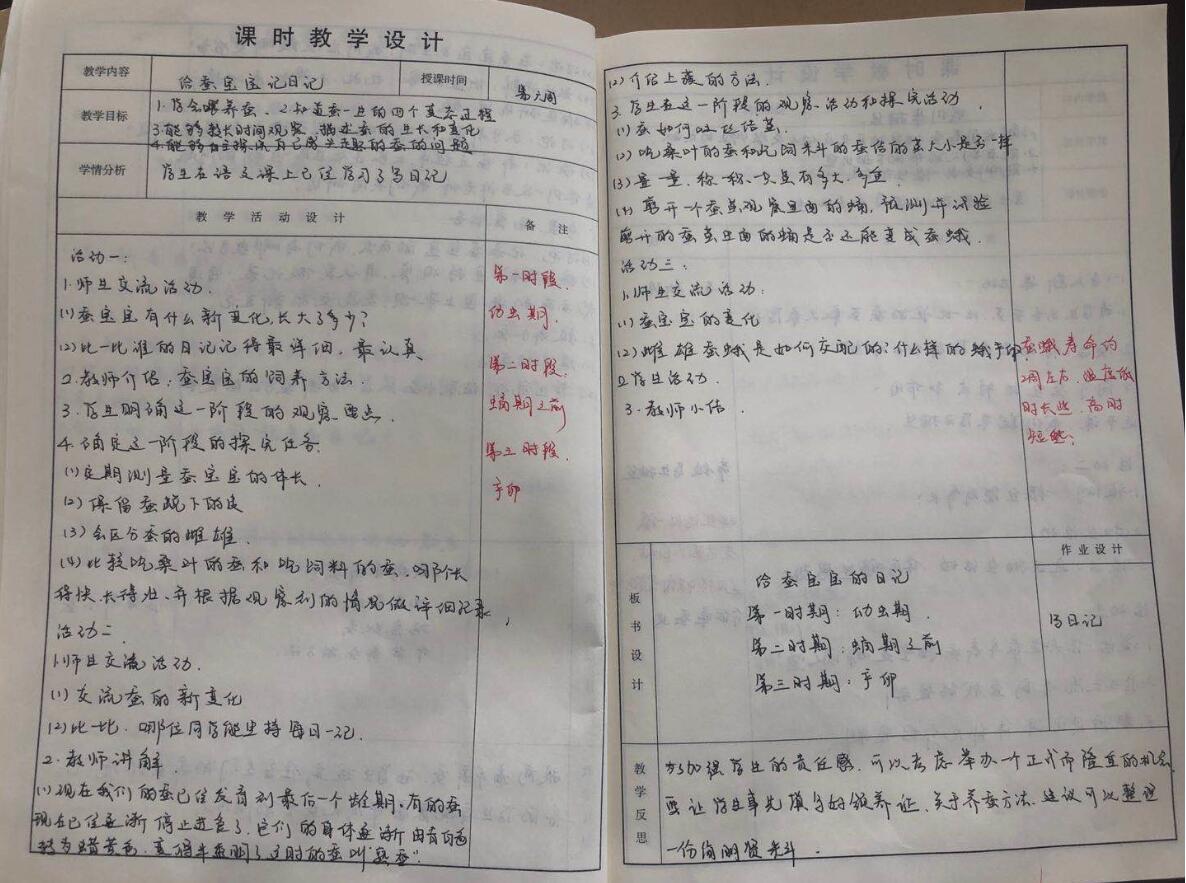 课时教学设计
教学内容 给蚕宝宝记日记 授课时间 第六周
教学目标 1.学会喂养蚕. 2.知道蚕一生的四个变态过程
3.能够较长时间观察、描述蚕的生长和变化
4.能够自主探究自己感兴趣的蚕的问题
学情分析 学生在语文课上已经学习了写日记
教学活动设计 备注
活动一:
1.师生交流活动.
(1)蚕宝宝有什么新变化,长大了多少?
(2)比一比谁的日记记得最详细,最认真
2.教师介绍:蚕宝宝的饲养方法.
3.学生明确这一阶段的观察重点.
4.确定这一阶段的探究任务.
(1)定期测量蚕宝宝的体长.
(2)保留蚕蜕下的皮
(3)会区分蚕的雌雄.
(4)比较吃桑叶的蚕和吃饲料的蚕,哪个长
得快,长得壮,并根据观察到的情况做详细记录,
活动二
1.师生交流活动.
(1)交流蚕的新变化
(2)比一比.哪位同学能坚持每日一记.
2.教师讲解.
(1)现在我们的蚕已经发育到最后一个龄期,有的蚕
现在已经逐渐停止进食了.它们的身体逐渐由青白色
转为蜡黄色,变得半透明了,这时的蚕叫"熟蚕".
第一时段.
幼虫期.
第二时段.
蛹期之前
第三时段.
产卵
(2)介绍上蔟的方法.
3.学生在这一阶段的观察活动和探究活动.
(1)蚕如何吐丝结茧.
(2)吃桑叶的蚕和吃饲料的蚕结的茧大小是否一样
(3)量一量,称一称,大茧有多大,多重.
(4)剪开一个蚕茧观察里面的蛹,预测并试验
剪开的蚕茧里面的蛹是否还能变成蚕蛾.
活动三:
1.师生交流活动:
(1)蚕宝宝的变化
(2)雌雄蚕蛾是如何交配的?什么样的蛾产卵
2.学生活动.
3.教师小结.
蚕蛾寿命为
1周左右,温度低
时长些.高时
短些;
板书设计
给蚕宝宝的日记
第一时期:幼虫期.
第二时期:蛹期之前
第三时期:产卵
作业设计
写日记
教学反思
为了加强学生的责任感,可以考虑举办一个正式而隆重的机会.
要让学生事先填写好领养证.关于养蚕方法,建议可以整理
一份简明资料.